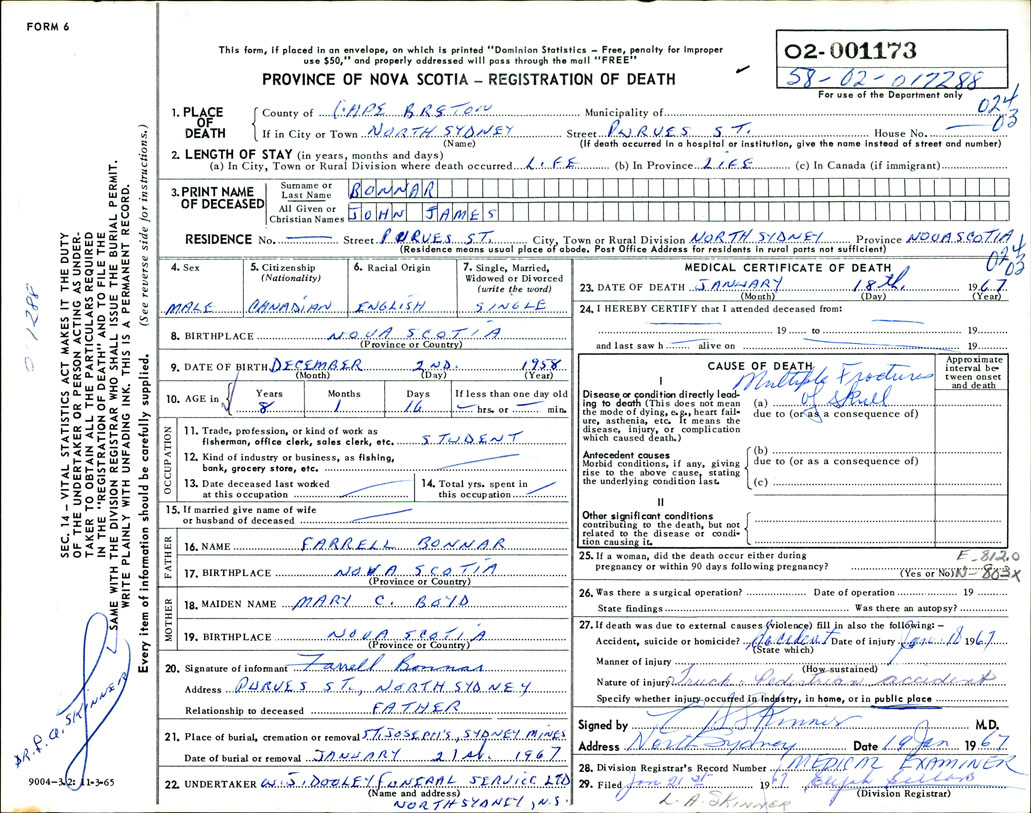 FORM 6
This form, if placed in an envelope, on which is printed "Dominion Statistics – Free, penalty for improper
use $50," and properly addressed will pass through the mail "FREE"
PROVINCE OF NOVA SCOTIA – REGISTRATION OF DEATH
02-001173
58-02-017288
For use of the Department only
024
03
1. PLACE OF DEATH
County of CAPE BRETON Municipality of
If in City or Town NORTH SYDNEY Street PURVES ST. House No. —
(Name) (If death occurred in a hospital or institution, give the name instead of street and number)
2. LENGTH OF STAY (in years, months and days)
(a) In City, Town or Rural Division where death occurred LIFE (b) In Province LIFE (c) In Canada (if immigrant)
3. PRINT NAME OF DECEASED
Surname or Last Name BONNAR
All Given or Christian Names JOHN JAMES
RESIDENCE No. — Street PURVES ST. City, Town or Rural Division NORTH SYDNEY Province NOVA SCOTIA
(Residence means usual place of abode. Post Office Address for residents in rural parts not sufficient)
024
03
4. Sex
MALE
5. Citizenship (Nationality)
CANADIAN
6. Racial Origin
ENGLISH
7. Single, Married, Widowed or Divorced (write the word)
SINGLE
8. BIRTHPLACE NOVA SCOTIA
(Province or Country)
9. DATE OF BIRTH DECEMBER 2ND. 1958
(Month) (Day) (Year)
10. AGE in Years Months Days If less than one day old
8 1 16 — hrs. or — min.
OCCUPATION
11. Trade, profession, or kind of work as
fisherman, office clerk, sales clerk, etc. STUDENT
12. Kind of industry or business, as fishing,
bank, grocery store, etc.
13. Date deceased last worked
at this occupation
14. Total yrs. spent in
this occupation
15. If married give name of wife
or husband of deceased
FATHER
16. NAME FARRELL BONNAR
17. BIRTHPLACE NOVA SCOTIA
(Province or Country)
MOTHER
18. MAIDEN NAME MARY C. BOYD
19. BIRTHPLACE NOVA SCOTIA
(Province or Country)
20. Signature of informant Farrell Bonnar
Address PURVES ST., NORTH SYDNEY
Relationship to deceased FATHER
21. Place of burial, cremation or removal ST. JOSEPH'S, SYDNEY MINES
Date of burial or removal JANUARY 21 1967
22. UNDERTAKER W. J. DOOLEY FUNERAL SERVICE LTD
(Name and address)
NORTH SYDNEY, N.S.
MEDICAL CERTIFICATE OF DEATH
23. DATE OF DEATH JANUARY 18th. 1967
(Month) (Day) (Year)
24. I HEREBY CERTIFY that I attended deceased from:
19 to 19
and last saw h alive on 19
CAUSE OF DEATH
Approximate interval between onset and death
I
Disease or condition directly leading to death (This does not mean
the mode of dying, e.g., heart failure, asthenia, etc. It means the
disease, injury, or complication
which caused death.)
(a) Multiple Fractures of Skull
due to (or as a consequence of)
Antecedent causes
Morbid conditions, if any, giving
rise to the above cause, stating
the underlying condition last.
(b)
due to (or as a consequence of)
(c)
II
Other significant conditions
contributing to the death, but not
related to the disease or condition causing it.
25. If a woman, did the death occur either during
pregnancy or within 90 days following pregnancy?
(Yes or No)
E-812.0
N-803X
26. Was there a surgical operation? Date of operation 19
State findings Was there an autopsy?
27. If death was due to external causes (violence) fill in also the following: –
Accident, suicide or homicide? accident Date of injury Jan 18 1967
(State which)
Manner of injury
(How sustained)
Nature of injury Truck Pedestrian accident
Specify whether injury occurred in industry, in home, or in public place
Signed by Skinner M.D.
Address North Sydney Date 19 Jan 1967
28. Division Registrar's Record Number
MEDICAL EXAMINER
29. Filed Jan 21st 1967
(Division Registrar)
L. A. SKINNER
SEC. 14 – VITAL STATISTICS ACT MAKES IT THE DUTY
OF THE UNDERTAKER OR PERSON ACTING AS UNDERTAKER TO OBTAIN ALL THE PARTICULARS REQUIRED
IN THE "REGISTRATION OF DEATH" AND TO FILE THE
SAME WITH THE DIVISION REGISTRAR WHO SHALL ISSUE THE BURIAL PERMIT.
WRITE PLAINLY WITH UNFADING INK. THIS IS A PERMANENT RECORD.
Every item of information should be carefully supplied. (See reverse side for instructions.)
9004-3.2: 11-3-65